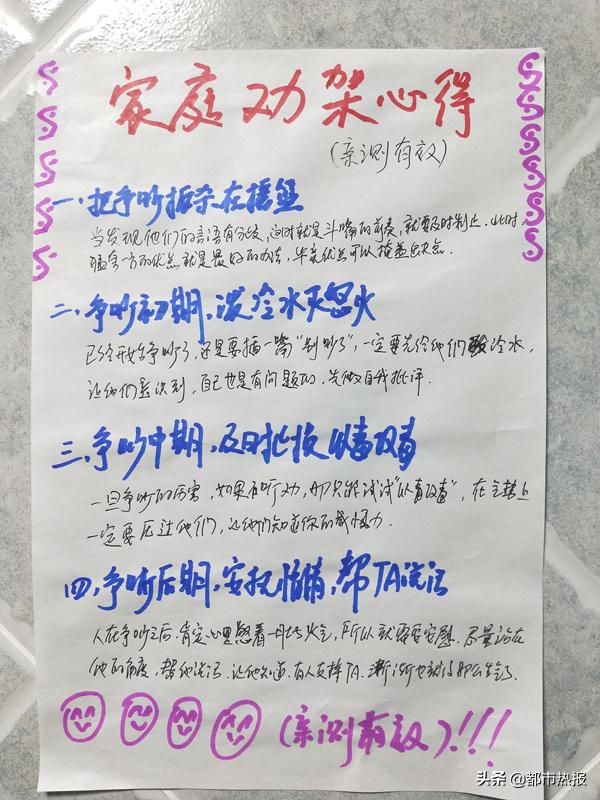 家庭劝架心得
(亲测有效)
一、把争吵扼杀在摇篮
当发现他们的言语有分歧,这时就是斗嘴的前奏,就要及时制止.此时
猛夸一方的优点就是最好的办法,毕竟优点可以掩盖缺点.
二、争吵初期,泼冷水灭怒火
已经开始争吵了,还是要插一嘴“别吵了”,一定要先给他们泼冷水,
让他们意识到,自己也是有问题的,先做自我批评.
三、争吵中期,及时止损以毒攻毒
一旦争吵的厉害,如果不听劝,那只能试试“以毒攻毒”,在气势上
一定要压过他们,让他们知道你的威慑力.
四、争吵后期,安抚情绪,帮TA说话
人在争吵之后,肯定心里憋着一肚子火气,所以就需要安慰.尽量站在
他的角度,帮他说话.让他知道.有人支持TA.渐渐也就没那么生气了.
(亲测有效)!!!
头条 @都市热报